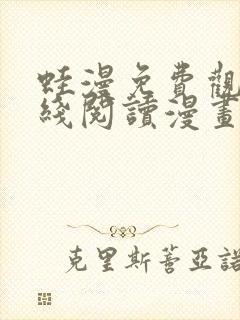 蛙漫免費觀
綫閱讀漫畫
克里斯蒂亞諾